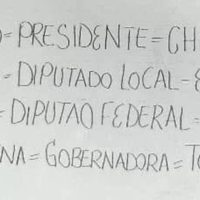 = PRESIDENTE = CH
= DIPUTADO LOCAL =
= DIPUTAO FEDERAL =
NA = GOBERNADORA = TO